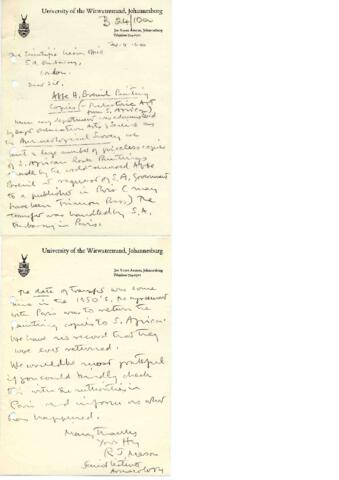 University of the Witwatersrand, Johannesburg
B 24/10a
Jan Smuts Avenue, Johannesburg
Telephone
The Scientific Liaison Office
S.A. Embassy,
London.
Dear Sir,
Abbé H. Breuil Painting
Copies (- Prehistoric Art
from S. Africa)
When my department was administered
by Dept Education Arts, Science as
the Archaeological Survey we
sent a large number of priceless copies
of S. African Rock Paintings
made by the world-renowned Abbé
Breuil at request of S.A. Government
to a publisher in Paris (may
have been Trianon Press). The
transfer was handled by S.A.
Embassy in Paris.
University of the Witwatersrand, Johannesburg
Jan Smuts Avenue, Johannesburg
Telephone
The date of transfer was some
time in the 1950's. The agreement
with Paris was to return the
painting copies to S. Africa.
We have no record that they
were ever returned.
We would be most grateful
if you could kindly check
this with the authorities in
Paris and inform us what
has happened.
Many Thanks
R J Mason
Archaeology